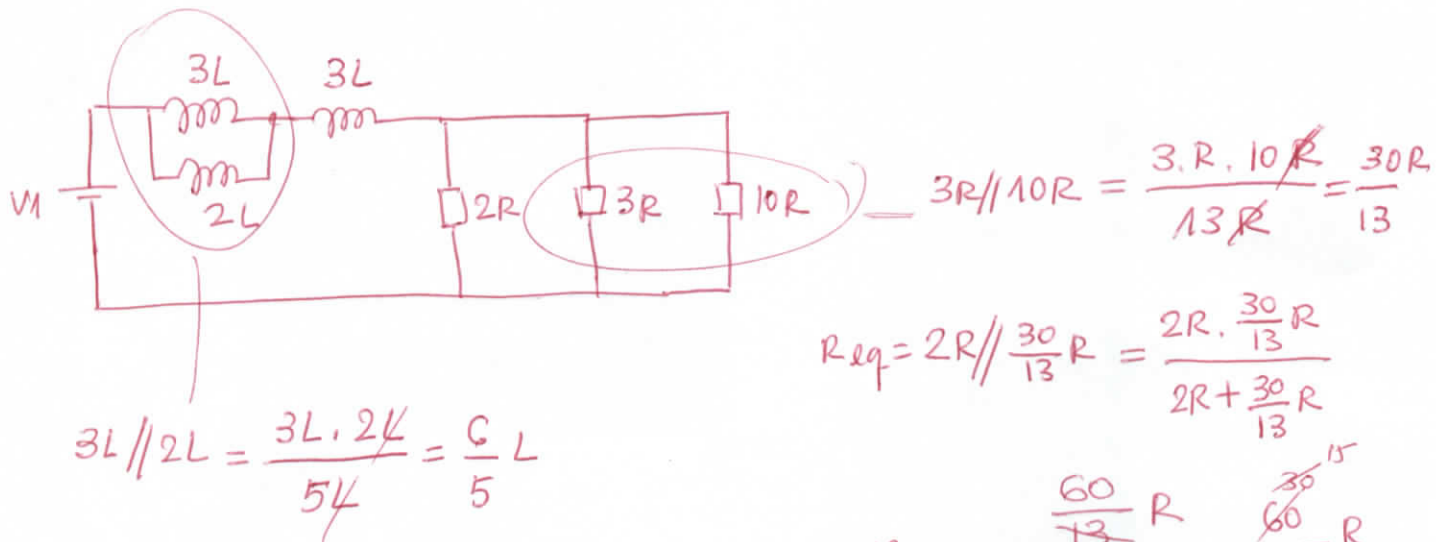 3L 3L
2L
V1
2R 3R 10R
3R//10R = \frac{3.R.10R}{13R} = \frac{30R}{13}
Req = 2R//\frac{30}{13}R = \frac{2R.\frac{30}{13}R}{2R+\frac{30}{13}R}
3L//2L = \frac{3L.2L}{5L} = \frac{6}{5}L
\frac{60}{13}R 30 15
60 R